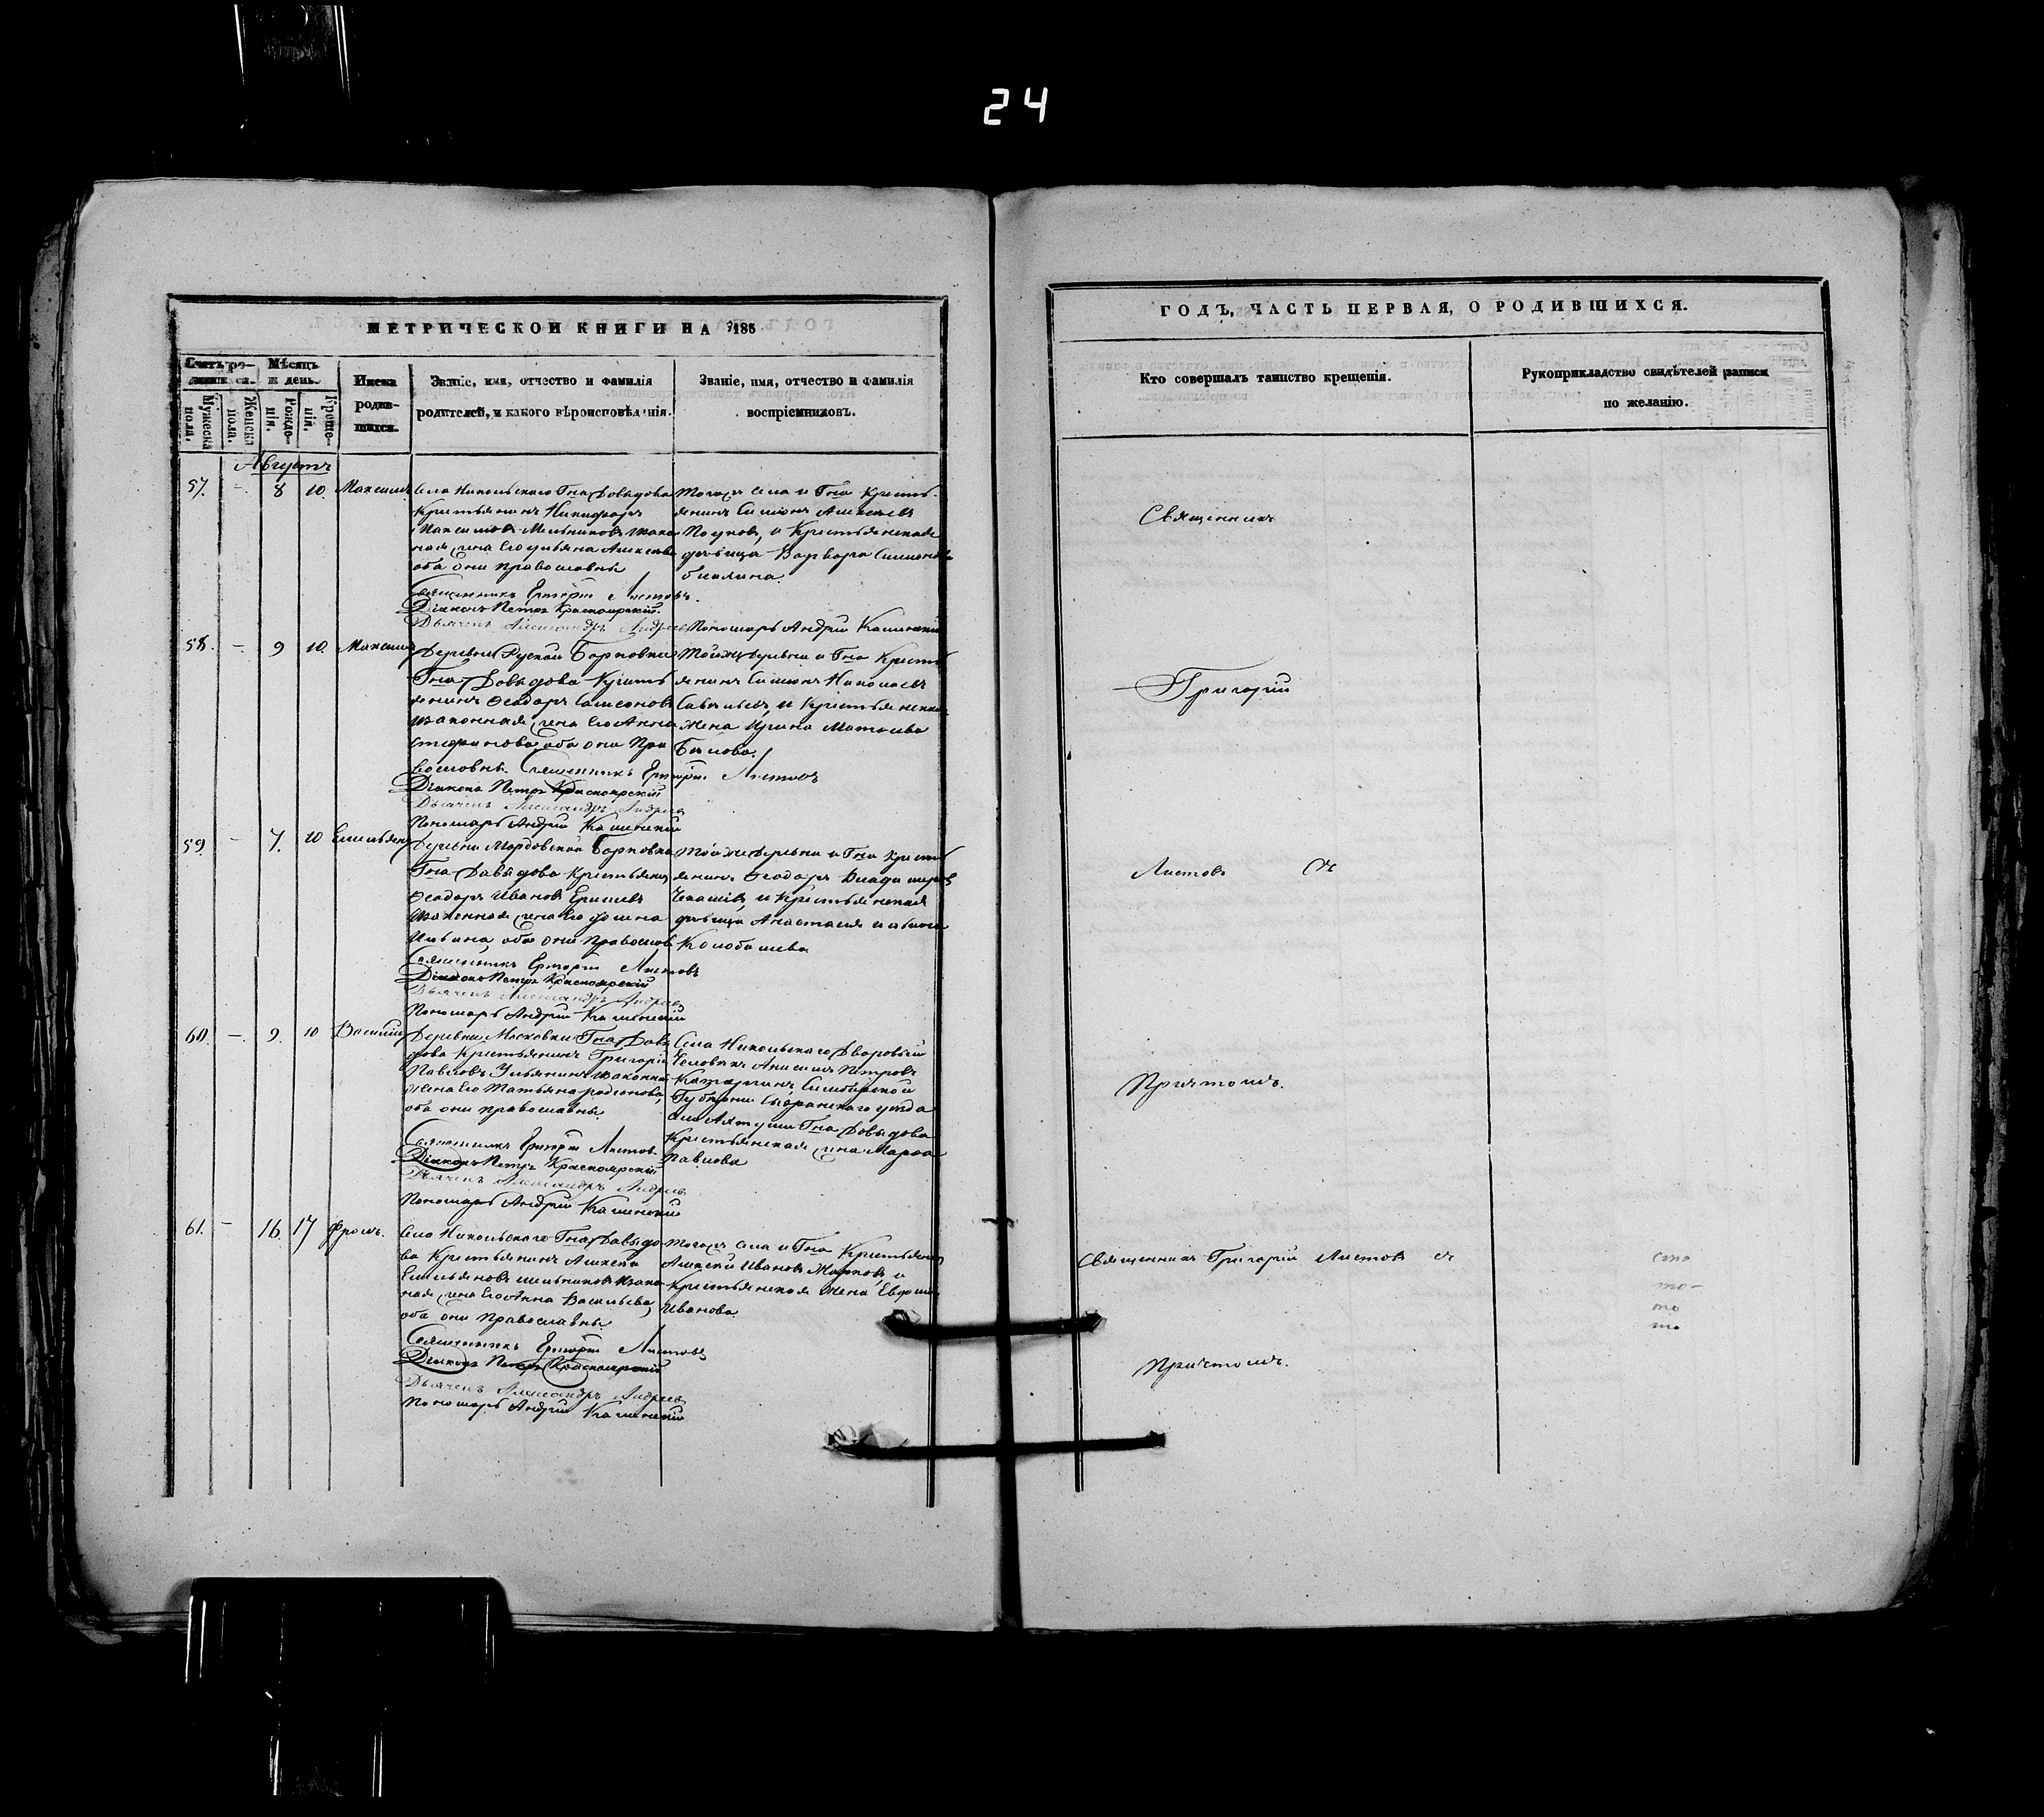 24
МЕТРИЧЕСКОЙ КНИГИ НА 185
Счетъ ро-
Мѣсяцъ
и день.
Имена
родив-
шихся.
Званіе, имя, отчество и фамилія
родителей, и какого вѣроисповѣданія.
Званіе, имя, отчество и фамилія
воспріемниковъ.
Мужеска
пола.
Женска
пола.
Рожде-
нія.
Креще-
нія.
Августъ
57. - 8 10 Максимъ
Села Никольскаго Гна Довыдова
Крестьянинъ Никифоръ
Максимовъ Мельниковъ закон
ная жена его Ульяна Алексеева
оба они православны
Священникъ Григорій Листовъ.
Діаконъ Петръ Красноярскій.
Дьячекъ Александръ Андреев
Пономарь Андрей Кашинскій
Тогожъ села и Гна Кресть-
янинъ Симеонъ Алексеевъ
и Крестьянская
дѣвица Варвара Симеонова
58. - 9 10. Максимъ
Деревни Руской Борковки
Гна Довыдова Кресть
янинъ Феодоръ Самсоновъ
законная жена его Анна
Стефанова оба они Пра
вославны. Священникъ Григорій Листовъ
Діаконъ Петръ Красноярскій
Дьячекъ Александръ Андреев
Пономарь Андрей Кашинскій
Тойже деревни и Гна Кресть
янинъ Симеонъ Николаевъ
Савельевъ, и Крестьянская
жена Ирина Матвеева
Белова.
59. - 7. 10 Емельянъ
Деревни Мордовской Борковки
Гна Давыдова Крестьянин
Феодоръ Ивановъ
законная жена его
Ильина, оба они Православ
Священникъ Григорій Листовъ
Діаконъ Петръ Красноярскій
Дьячекъ Александръ Андреев
Пономарь Андрей Кашинскій
Тойже деревни и Гна Кресть
янинъ Феодоръ Владимеров
и Крестьянская
дѣвица Анастасия
60. - 9. 10 Василий
Деревни Московки Гна Давы
дова Крестьянинъ Григорій
Павловъ Ульянинъ законная
жена его Татьяна родионова,
оба они православны.
Священникъ Григорій Листов
Діаконъ Петръ Красноярскій
Дьячекъ Александръ Андреев
Пономарь Андрей Кашинскій
Села Никольскаго Дворовый
Человѣкъ Анисимъ Петровъ
Симбирской
Губерніи Сызранскаго уезда
села Ахтуши Гна Довыдова
Крестьянская жена Марфа
Павлова
61. - 16. 17 Фролъ.
Села Никольскаго Гна Давыдо
ва Крестьянинъ Алексей
Емельяновъ мельниковъ закон
ная жена его Анна Васильева,
оба они Православны.
Священникъ Григорій Листовъ
Діаконъ Петръ Красноярскій
Дьячекъ Александръ Андреев
Пономарь Андрей Кашинскій
Тогожъ села и Гна Крестьянин
Алексей Ивановъ Марковъ, и
Крестьянская жена
Иванова.
ГОДЪ, ЧАСТЬ ПЕРВАЯ, О РОДИВШИХСЯ.
Кто совершалъ таинство крещенія.
Рукоприкладство свидѣтелей записи
по желанію.
Священникъ
Григорій
Листовъ Съ
Причтомъ.
Священникъ Григорій Листовъ съ
Причтомъ.